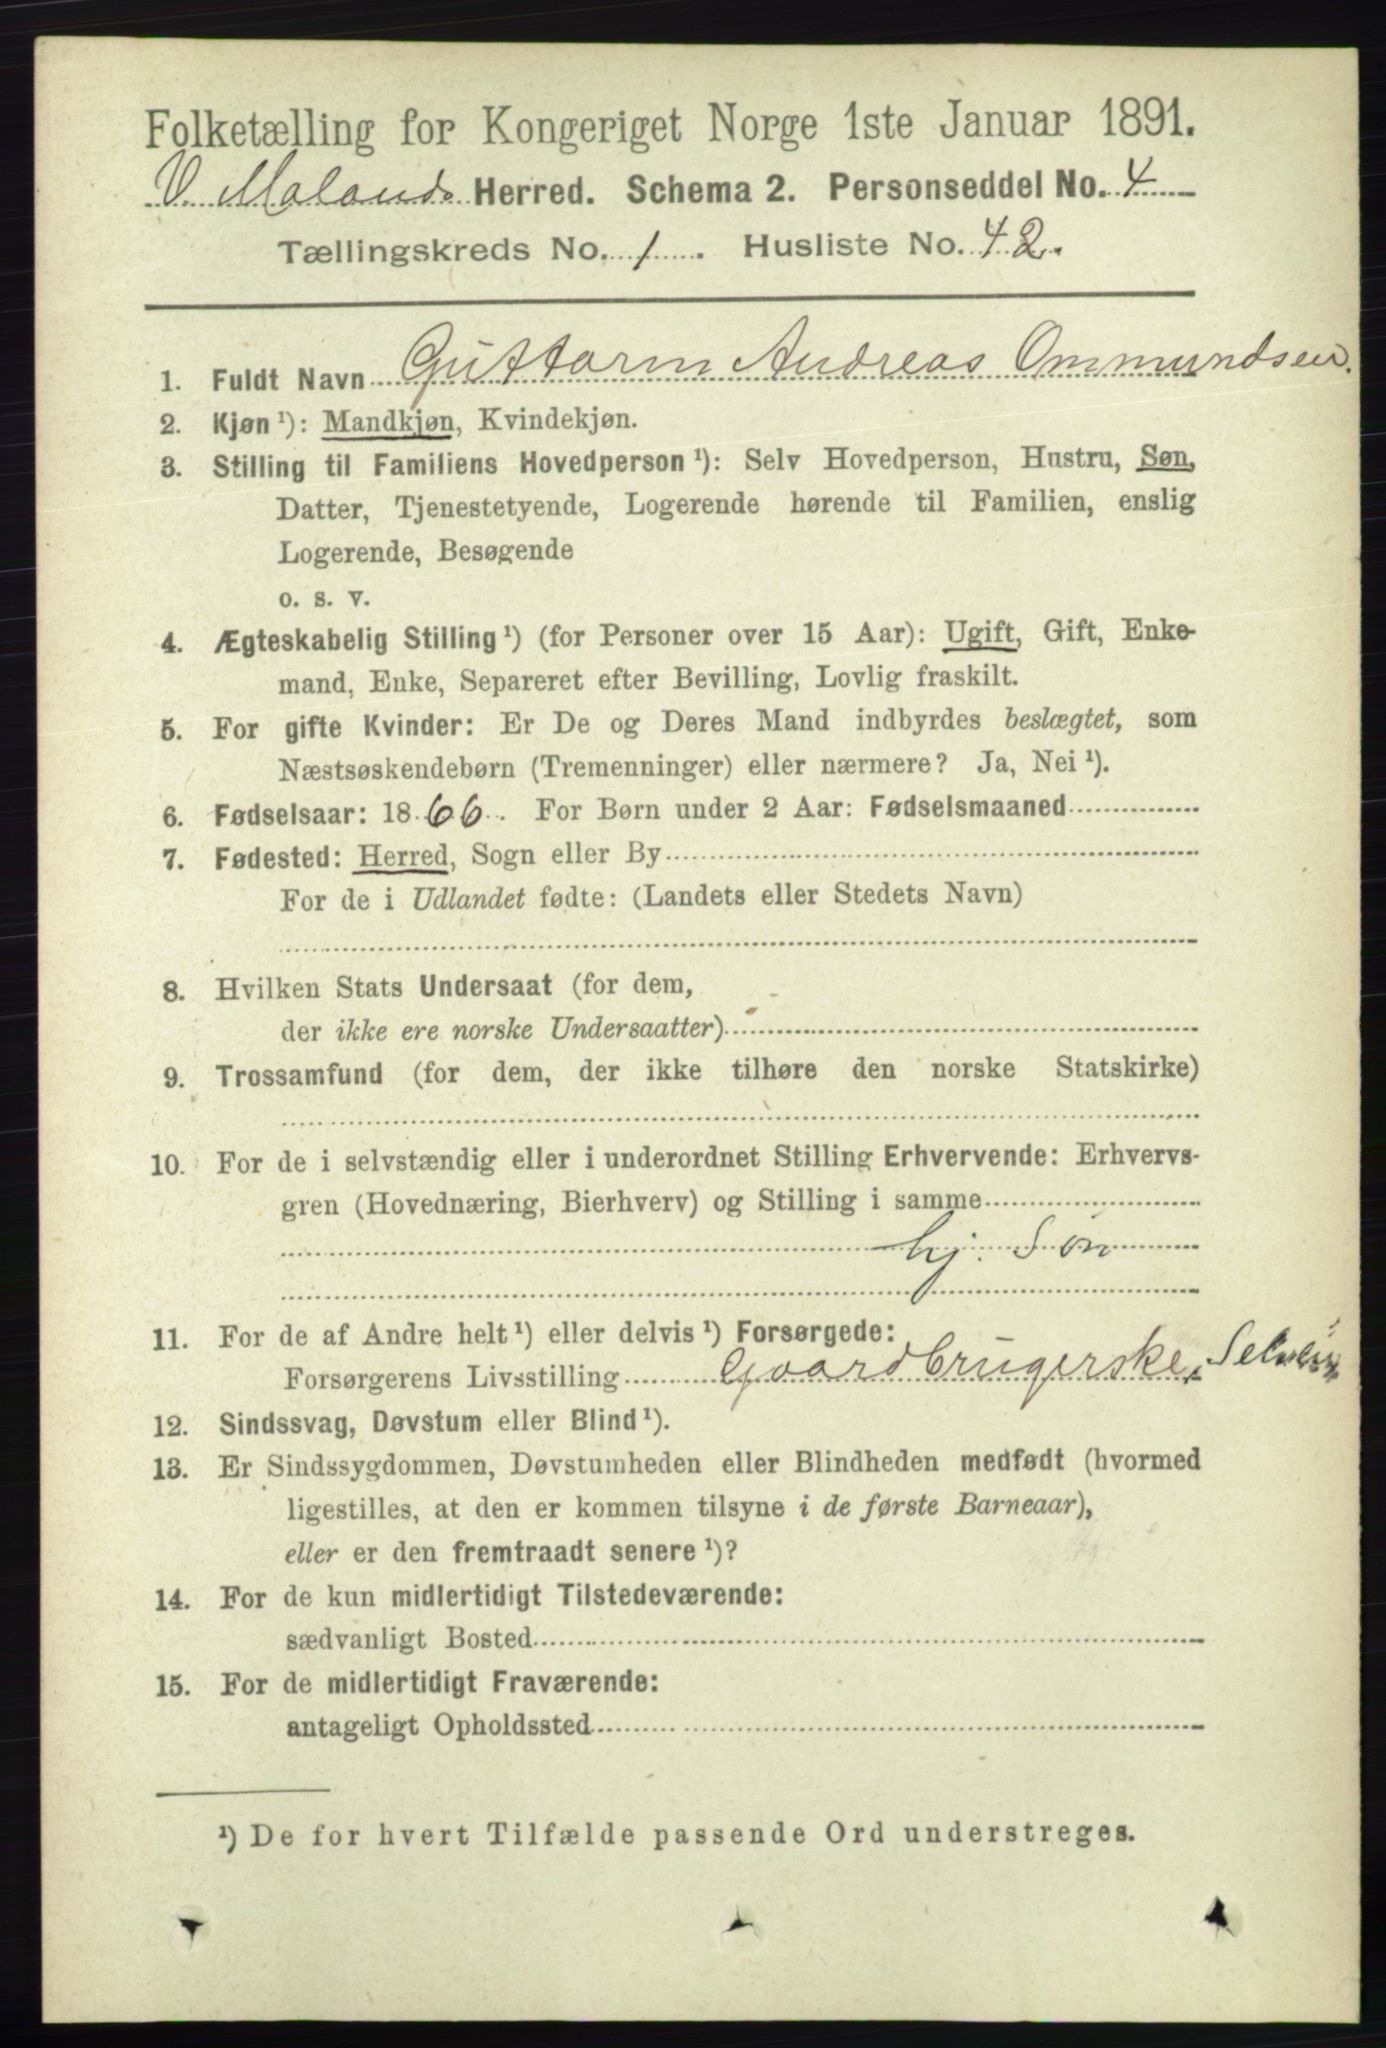 Folketælling for Kongeriget Norge 1ste Januar 1891.
V. Molands Herred. Schema 2. Personseddel No. 4
Tællingskreds No. 1. Husliste No. 42.
1. Fuldt Navn Guttorm Andreas Ommundsen.
2. Kjøn ¹): Mandkjøn, Kvindekjøn.
3. Stilling til Familiens Hovedperson ¹): Selv Hovedperson, Hustru, Søn,
Datter, Tjenestetyende, Logerende hørende til Familien, enslig
Logerende, Besøgende
o. s. v.
4. Ægteskabelig Stilling ¹) (for Personer over 15 Aar): Ugift, Gift, Enke-
mand, Enke, Separeret efter Bevilling, Lovlig fraskilt.
5. For gifte Kvinder: Er De og Deres Mand indbyrdes beslægtet, som
Næstsøskendebørn (Tremenninger) eller nærmere? Ja, Nei ¹).
6. Fødselsaar: 1866. For Børn under 2 Aar: Fødselsmaaned
7. Fødested: Herred, Sogn eller By
For de i Udlandet fødte: (Landets eller Stedets Navn)
8. Hvilken Stats Undersaat (for dem,
der ikke ere norske Undersaatter)
9. Trossamfund (for dem, der ikke tilhøre den norske Statskirke)
10. For de i selvstændig eller i underordnet Stilling Erhvervende: Erhvervs-
gren (Hovednæring, Bierhverv) og Stilling i samme
hj. Søn
11. For de af Andre helt ¹) eller delvis ¹) Forsørgede:
Forsørgerens Livsstilling Gaardbrugerske,
12. Sindssvag, Døvstum eller Blind ¹).
13. Er Sindssygdommen, Døvstumheden eller Blindheden medfødt (hvormed
ligestilles, at den er kommen tilsyne i de første Barneaar),
eller er den fremtraadt senere ¹)?
14. For de kun midlertidigt Tilstedeværende:
sædvanligt Bosted
15. For de midlertidigt Fraværende:
antageligt Opholdssted
¹) De for hvert Tilfælde passende Ord understreges.